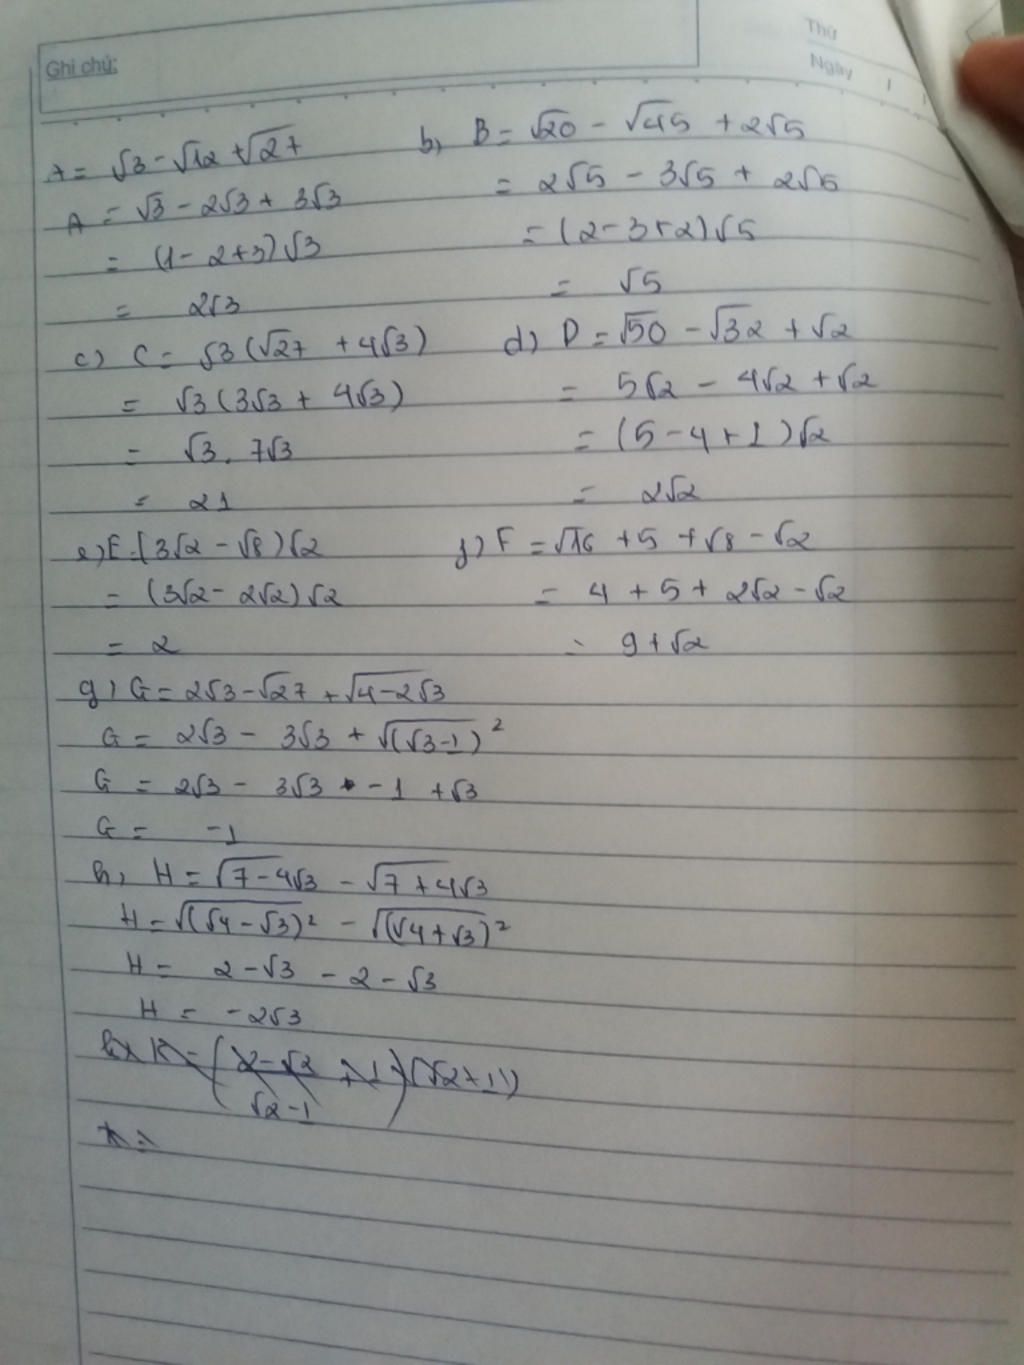 Ghi chú:
Thứ
Ngày / /
A = √3 - √12 + √27
A = √3 - 2√3 + 3√3
= (1 - 2 + 3)√3
= 2√3
b) B = √20 - √45 + 2√5
= 2√5 - 3√5 + 2√5
= (2 - 3 + 2)√5
= √5
c) C = √3(√27 + 4√3)
= √3(3√3 + 4√3)
= √3 . 7√3
= 21
d) D = √50 - √32 + √2
= 5√2 - 4√2 + √2
= (5 - 4 + 1)√2
= 2√2
e) E = (3√2 - √8)√2
= (3√2 - 2√2)√2
= 2
f) F = √16 + 5 + √8 - √2
= 4 + 5 + 2√2 - √2
= 9 + √2
g) G = 2√3 - √27 + √(4 - 2√3)
G = 2√3 - 3√3 + √((√3 - 1)²)
G = 2√3 - 3√3 - 1 + √3
G = -1
h) H = √(7 - 4√3) - √(7 + 4√3)
H = √((√4 - √3)²) - √((√4 + √3)²)
H = 2 - √3 - 2 - √3
H = -2√3
K = ((2 - √2)/(√2 - 1) + 1)(√2 + 1)
K =